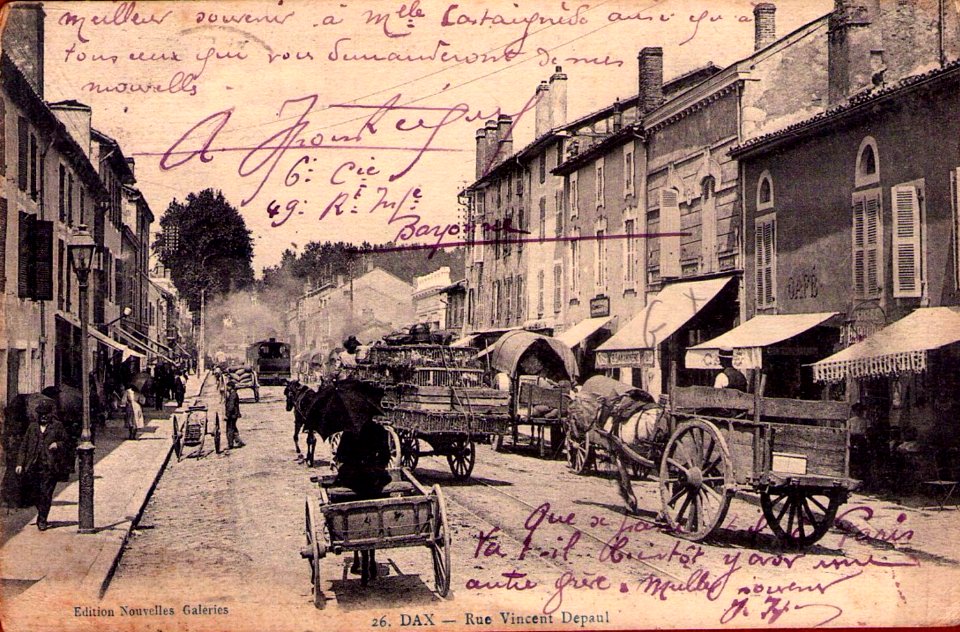 Meilleur souvenir à Melle Castaignède ainsi qu'à
tous ceux qui vous demanderont de mes
nouvelles
6e Cie
49e Rt Infie
Bayonne
CAFÉ
Que se passe t-il à Paris
Va t-il bientôt y avoir une
autre grève. Meilleur souvenir
Edition Nouvelles Galeries
26. DAX — Rue Vincent Depaul